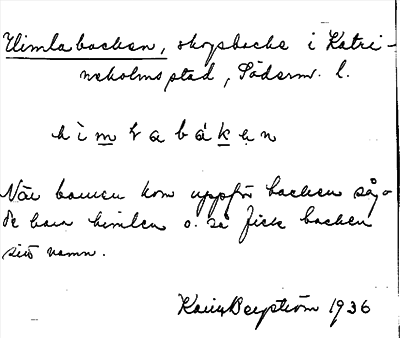 Himlabacken, skogsbacke i Katri-
neholms stad, Söderm. l.
hìmlabákęn
När barnen kom uppför backen såg-
o de bara himlen o. så fick backen
sitt namn.
Bergström 1936